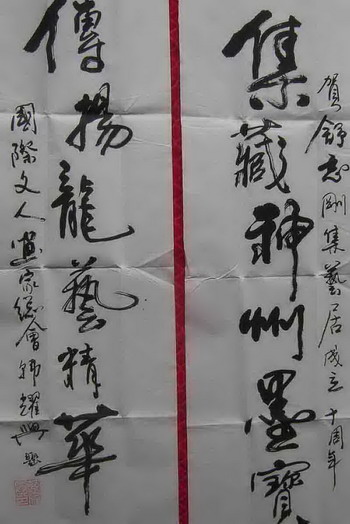 賀舒志剛集藝居成立十周年
集藏神州墨寶
傳揚龍藝精華
國際文人畫家總會韓耀興題